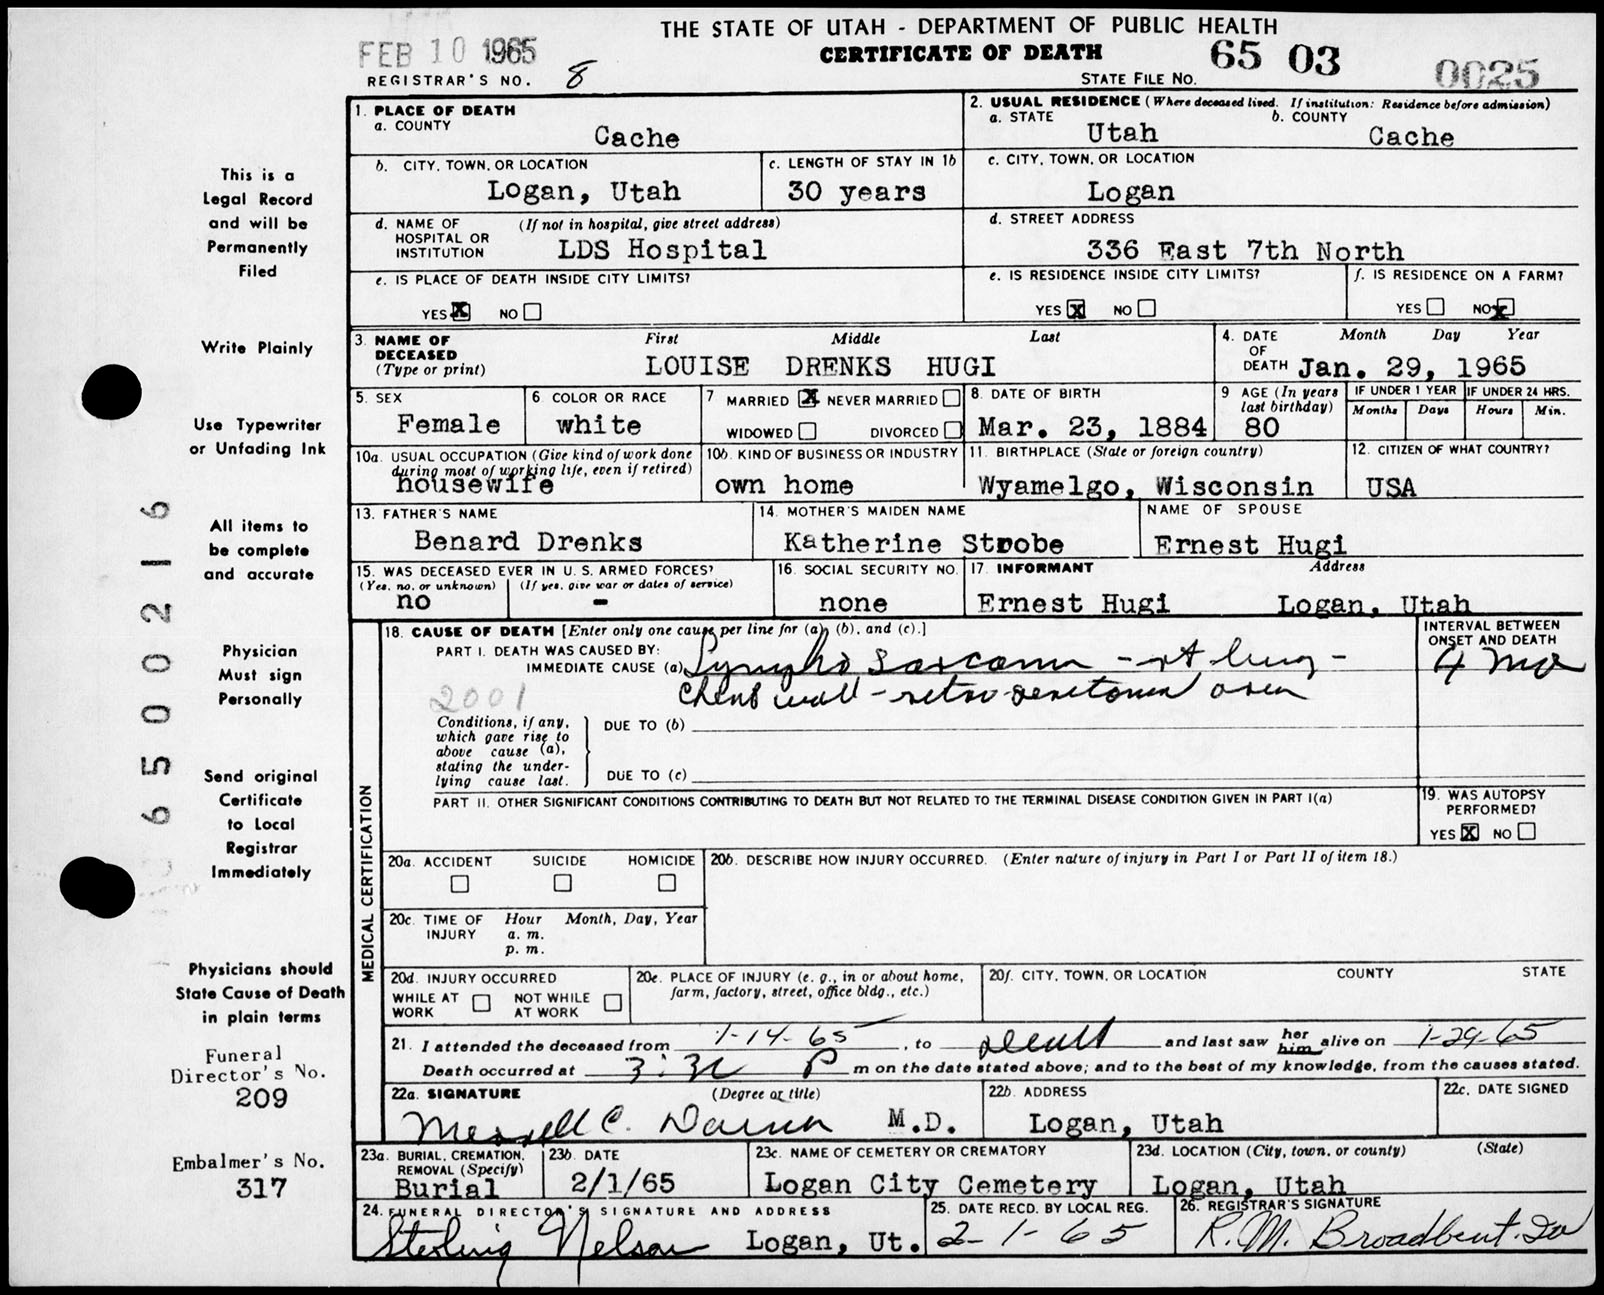 THE STATE OF UTAH - DEPARTMENT OF PUBLIC HEALTH
FEB 10 1965
CERTIFICATE OF DEATH 65 03 0025
REGISTRAR'S NO. 8
STATE FILE NO.
1. PLACE OF DEATH
a. COUNTY
Cache
2. USUAL RESIDENCE (Where deceased lived. If institution: Residence before admission)
a. STATE b. COUNTY
Utah Cache
b. CITY, TOWN, OR LOCATION
Logan, Utah
c. LENGTH OF STAY IN 1b
30 years
c. CITY, TOWN, OR LOCATION
Logan
d. NAME OF (If not in hospital, give street address)
HOSPITAL OR
INSTITUTION LDS Hospital
d. STREET ADDRESS
336 East 7th North
e. IS PLACE OF DEATH INSIDE CITY LIMITS?
YES X NO
e. IS RESIDENCE INSIDE CITY LIMITS?
YES X NO
f. IS RESIDENCE ON A FARM?
YES NO X
3. NAME OF First Middle Last
DECEASED
(Type or print) LOUISE DRENKS HUGI
4. DATE Month Day Year
OF
DEATH Jan. 29, 1965
5. SEX
Female
6 COLOR OR RACE
white
7 MARRIED X NEVER MARRIED
WIDOWED DIVORCED
8. DATE OF BIRTH
Mar. 23, 1884
9 AGE (In years
last birthday)
80
IF UNDER 1 YEAR IF UNDER 24 HRS.
Months Days Hours Min.
10a. USUAL OCCUPATION (Give kind of work done
during most of working life, even if retired)
housewife
10b. KIND OF BUSINESS OR INDUSTRY
own home
11. BIRTHPLACE (State or foreign country)
Wyamelgo, Wisconsin
12. CITIZEN OF WHAT COUNTRY?
USA
13. FATHER'S NAME
Benard Drenks
14. MOTHER'S MAIDEN NAME
Katherine Strobe
NAME OF SPOUSE
Ernest Hugi
15. WAS DECEASED EVER IN U. S. ARMED FORCES?
(Yes, no, or unknown) (If yes, give war or dates of service)
no -
16. SOCIAL SECURITY NO.
none
17. INFORMANT Address
Ernest Hugi Logan, Utah
18. CAUSE OF DEATH [Enter only one cause per line for (a), (b), and (c).]
INTERVAL BETWEEN
ONSET AND DEATH
PART I. DEATH WAS CAUSED BY:
IMMEDIATE CAUSE (a) Lympho Sarcoma - rt lung - 4 mo
2001 chest wall - retro peritoneal area
Conditions, if any,
which gave rise to
above cause (a),
stating the under-
lying cause last.
DUE TO (b)
DUE TO (c)
PART II. OTHER SIGNIFICANT CONDITIONS CONTRIBUTING TO DEATH BUT NOT RELATED TO THE TERMINAL DISEASE CONDITION GIVEN IN PART I(a)
19. WAS AUTOPSY
PERFORMED?
YES X NO
MEDICAL CERTIFICATION
20a. ACCIDENT SUICIDE HOMICIDE
20b. DESCRIBE HOW INJURY OCCURRED. (Enter nature of injury in Part I or Part II of item 18.)
20c. TIME OF Hour Month, Day, Year
INJURY a. m.
p. m.
20d. INJURY OCCURRED
WHILE AT NOT WHILE
WORK AT WORK
20e. PLACE OF INJURY (e. g., in or about home,
farm, factory, street, office bldg., etc.)
20f. CITY, TOWN, OR LOCATION COUNTY STATE
21. I attended the deceased from 1-14-65, to death and last saw her him alive on 1-29-65
Death occurred at 3:32 P m on the date stated above; and to the best of my knowledge, from the causes stated.
22a. SIGNATURE (Degree or title)
Merrell C. Daines M.D.
22b. ADDRESS
Logan, Utah
22c. DATE SIGNED
23a. BURIAL, CREMATION,
REMOVAL (Specify)
Burial
23b. DATE
2/1/65
23c. NAME OF CEMETERY OR CREMATORY
Logan City Cemetery
23d. LOCATION (City, town, or county) (State)
Logan, Utah
24. FUNERAL DIRECTOR'S SIGNATURE AND ADDRESS
Sterling Nelson Logan, Ut.
25. DATE RECD. BY LOCAL REG.
2-1-65
26. REGISTRAR'S SIGNATURE
R. M. Broadbent
This is a
Legal Record
and will be
Permanently
Filed
Write Plainly
Use Typewriter
or Unfading Ink
All items to
be complete
and accurate
Physician
Must sign
Personally
Send original
Certificate
to Local
Registrar
Immediately
Physicians should
State Cause of Death
in plain terms
Funeral
Director's No.
209
Embalmer's No.
317
6500216